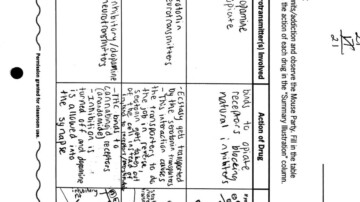 ents/addiction and observe the Mouse Party. Fill in the table
the action of each drug in the "Summary Illustration" column.
rotransmitter(s) Involved
Action of Drug
opamine
opiate
binds to opiate
receptors blocking
natural inhibitors
rotonin
neurotransmitters
- Ecstasy gets transported
by the serotonin transporters
- This interaction causes
the transporters to do
the job in reverse
serotonin
of the cell instead of
inhibitory/dopamine
neurotransmitters
- THC binds to
cannabinoid receptors
(anandamide)
- inhibition is
turned off and dopamine
is allowed into
the synapse
Permission granted for classroom use.
21